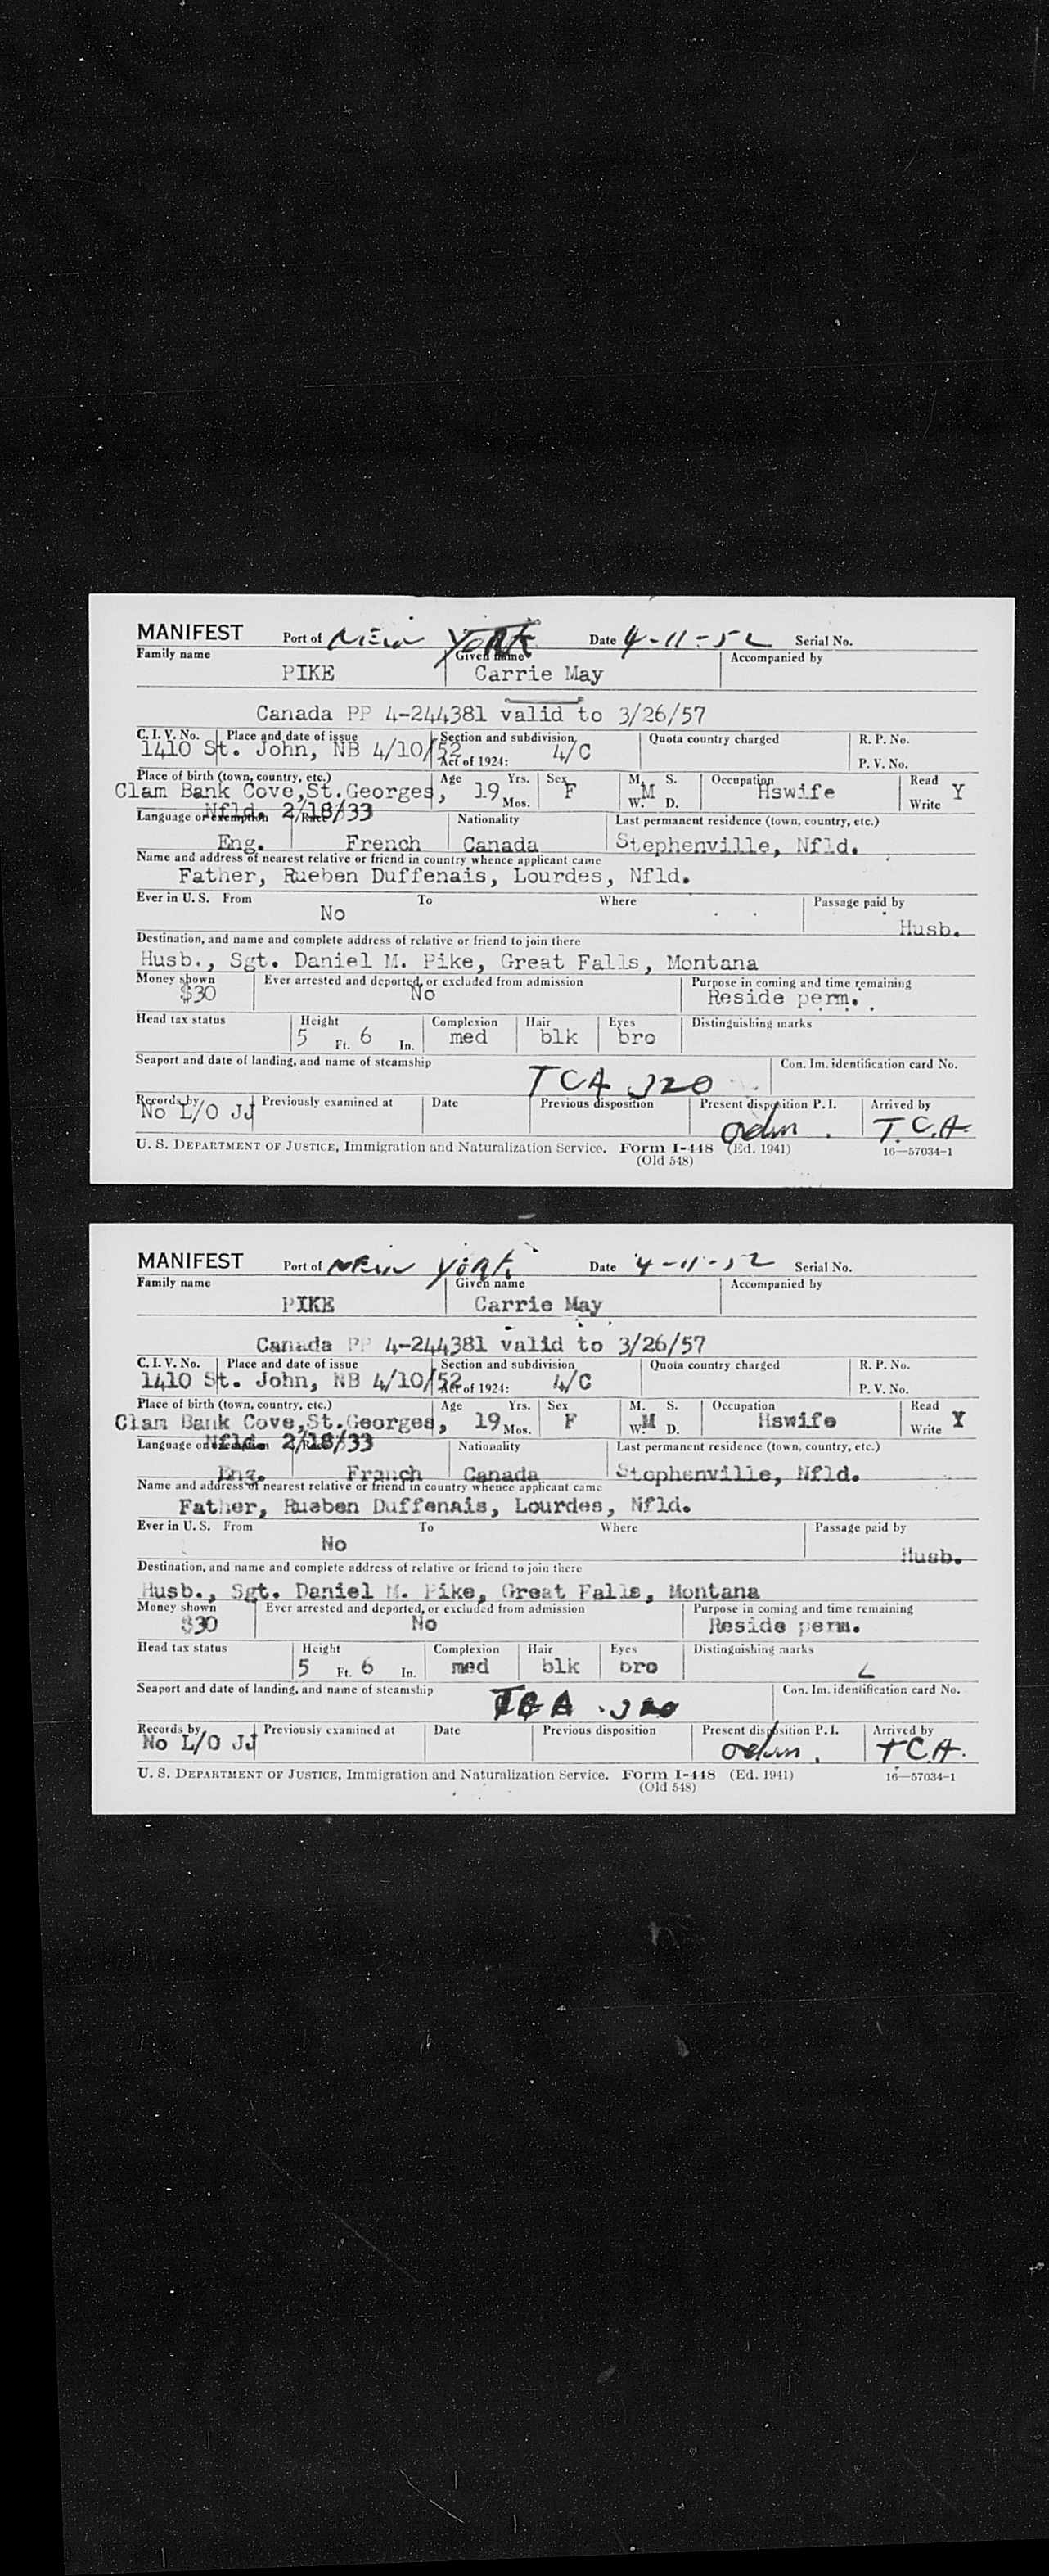 MANIFEST Port of NEW YORK Date 4-11-52 Serial No.
Family name Given name Accompanied by
PIKE Carrie May
Canada PP 4-244381 valid to 3/26/57
C. I. V. No. Place and date of issue Section and subdivision Quota country charged R. P. No.
1410 St. John, NB 4/10/52 Act of 1924: 4/C P. V. No.
Place of birth (town, country, etc.) Age Yrs. Sex M. S. Occupation Read
Clam Bank Cove,St.Georges, 19 Mos. F M W. D. Hswife Write Y
Nfld. 2/18/33
Language or exemption Race Nationality Last permanent residence (town, country, etc.)
Eng. French Canada Stephenville, Nfld.
Name and address of nearest relative or friend in country whence applicant came
Father, Rueben Duffenais, Lourdes, Nfld.
Ever in U. S. From To Where Passage paid by
No Husb.
Destination, and name and complete address of relative or friend to join there
Husb., Sgt. Daniel M. Pike, Great Falls, Montana
Money shown Ever arrested and deported, or excluded from admission Purpose in coming and time remaining
$30 No Reside perm.
Head tax status Height Complexion Hair Eyes Distinguishing marks
5 Ft. 6 In. med blk bro
Seaport and date of landing, and name of steamship TCA 320 Con. Im. identification card No.
Records by Previously examined at Date Previous disposition Present disposition P. I. Arrived by
No L/O JJ adm. T.C.A
U. S. DEPARTMENT OF JUSTICE, Immigration and Naturalization Service. Form I-448 (Ed. 1941) 16—57034-1
(Old 548)
MANIFEST Port of NEW YORK Date 4-11-52 Serial No.
Family name Given name Accompanied by
PIKE Carrie May
Canada PP 4-244381 valid to 3/26/57
C. I. V. No. Place and date of issue Section and subdivision Quota country charged R. P. No.
1410 St. John, NB 4/10/52 Act of 1924: 4/C P. V. No.
Place of birth (town, country, etc.) Age Yrs. Sex M. S. Occupation Read
Clam Bank Cove,St.Georges, 19 Mos. F M W. D. Hswife Write Y
Nfld. 2/18/33
Language or exemption Race Nationality Last permanent residence (town, country, etc.)
Eng. French Canada Stephenville, Nfld.
Name and address of nearest relative or friend in country whence applicant came
Father, Rueben Duffenais, Lourdes, Nfld.
Ever in U. S. From To Where Passage paid by
No Husb.
Destination, and name and complete address of relative or friend to join there
Husb., Sgt. Daniel M. Pike, Great Falls, Montana
Money shown Ever arrested and deported, or excluded from admission Purpose in coming and time remaining
$30 No Reside perm.
Head tax status Height Complexion Hair Eyes Distinguishing marks
5 Ft. 6 In. med blk bro
Seaport and date of landing, and name of steamship TCA 320 Con. Im. identification card No.
Records by Previously examined at Date Previous disposition Present disposition P. I. Arrived by
No L/O JJ adm. T.C.A.
U. S. DEPARTMENT OF JUSTICE, Immigration and Naturalization Service. Form I-448 (Ed. 1941) 16—57034-1
(Old 548)